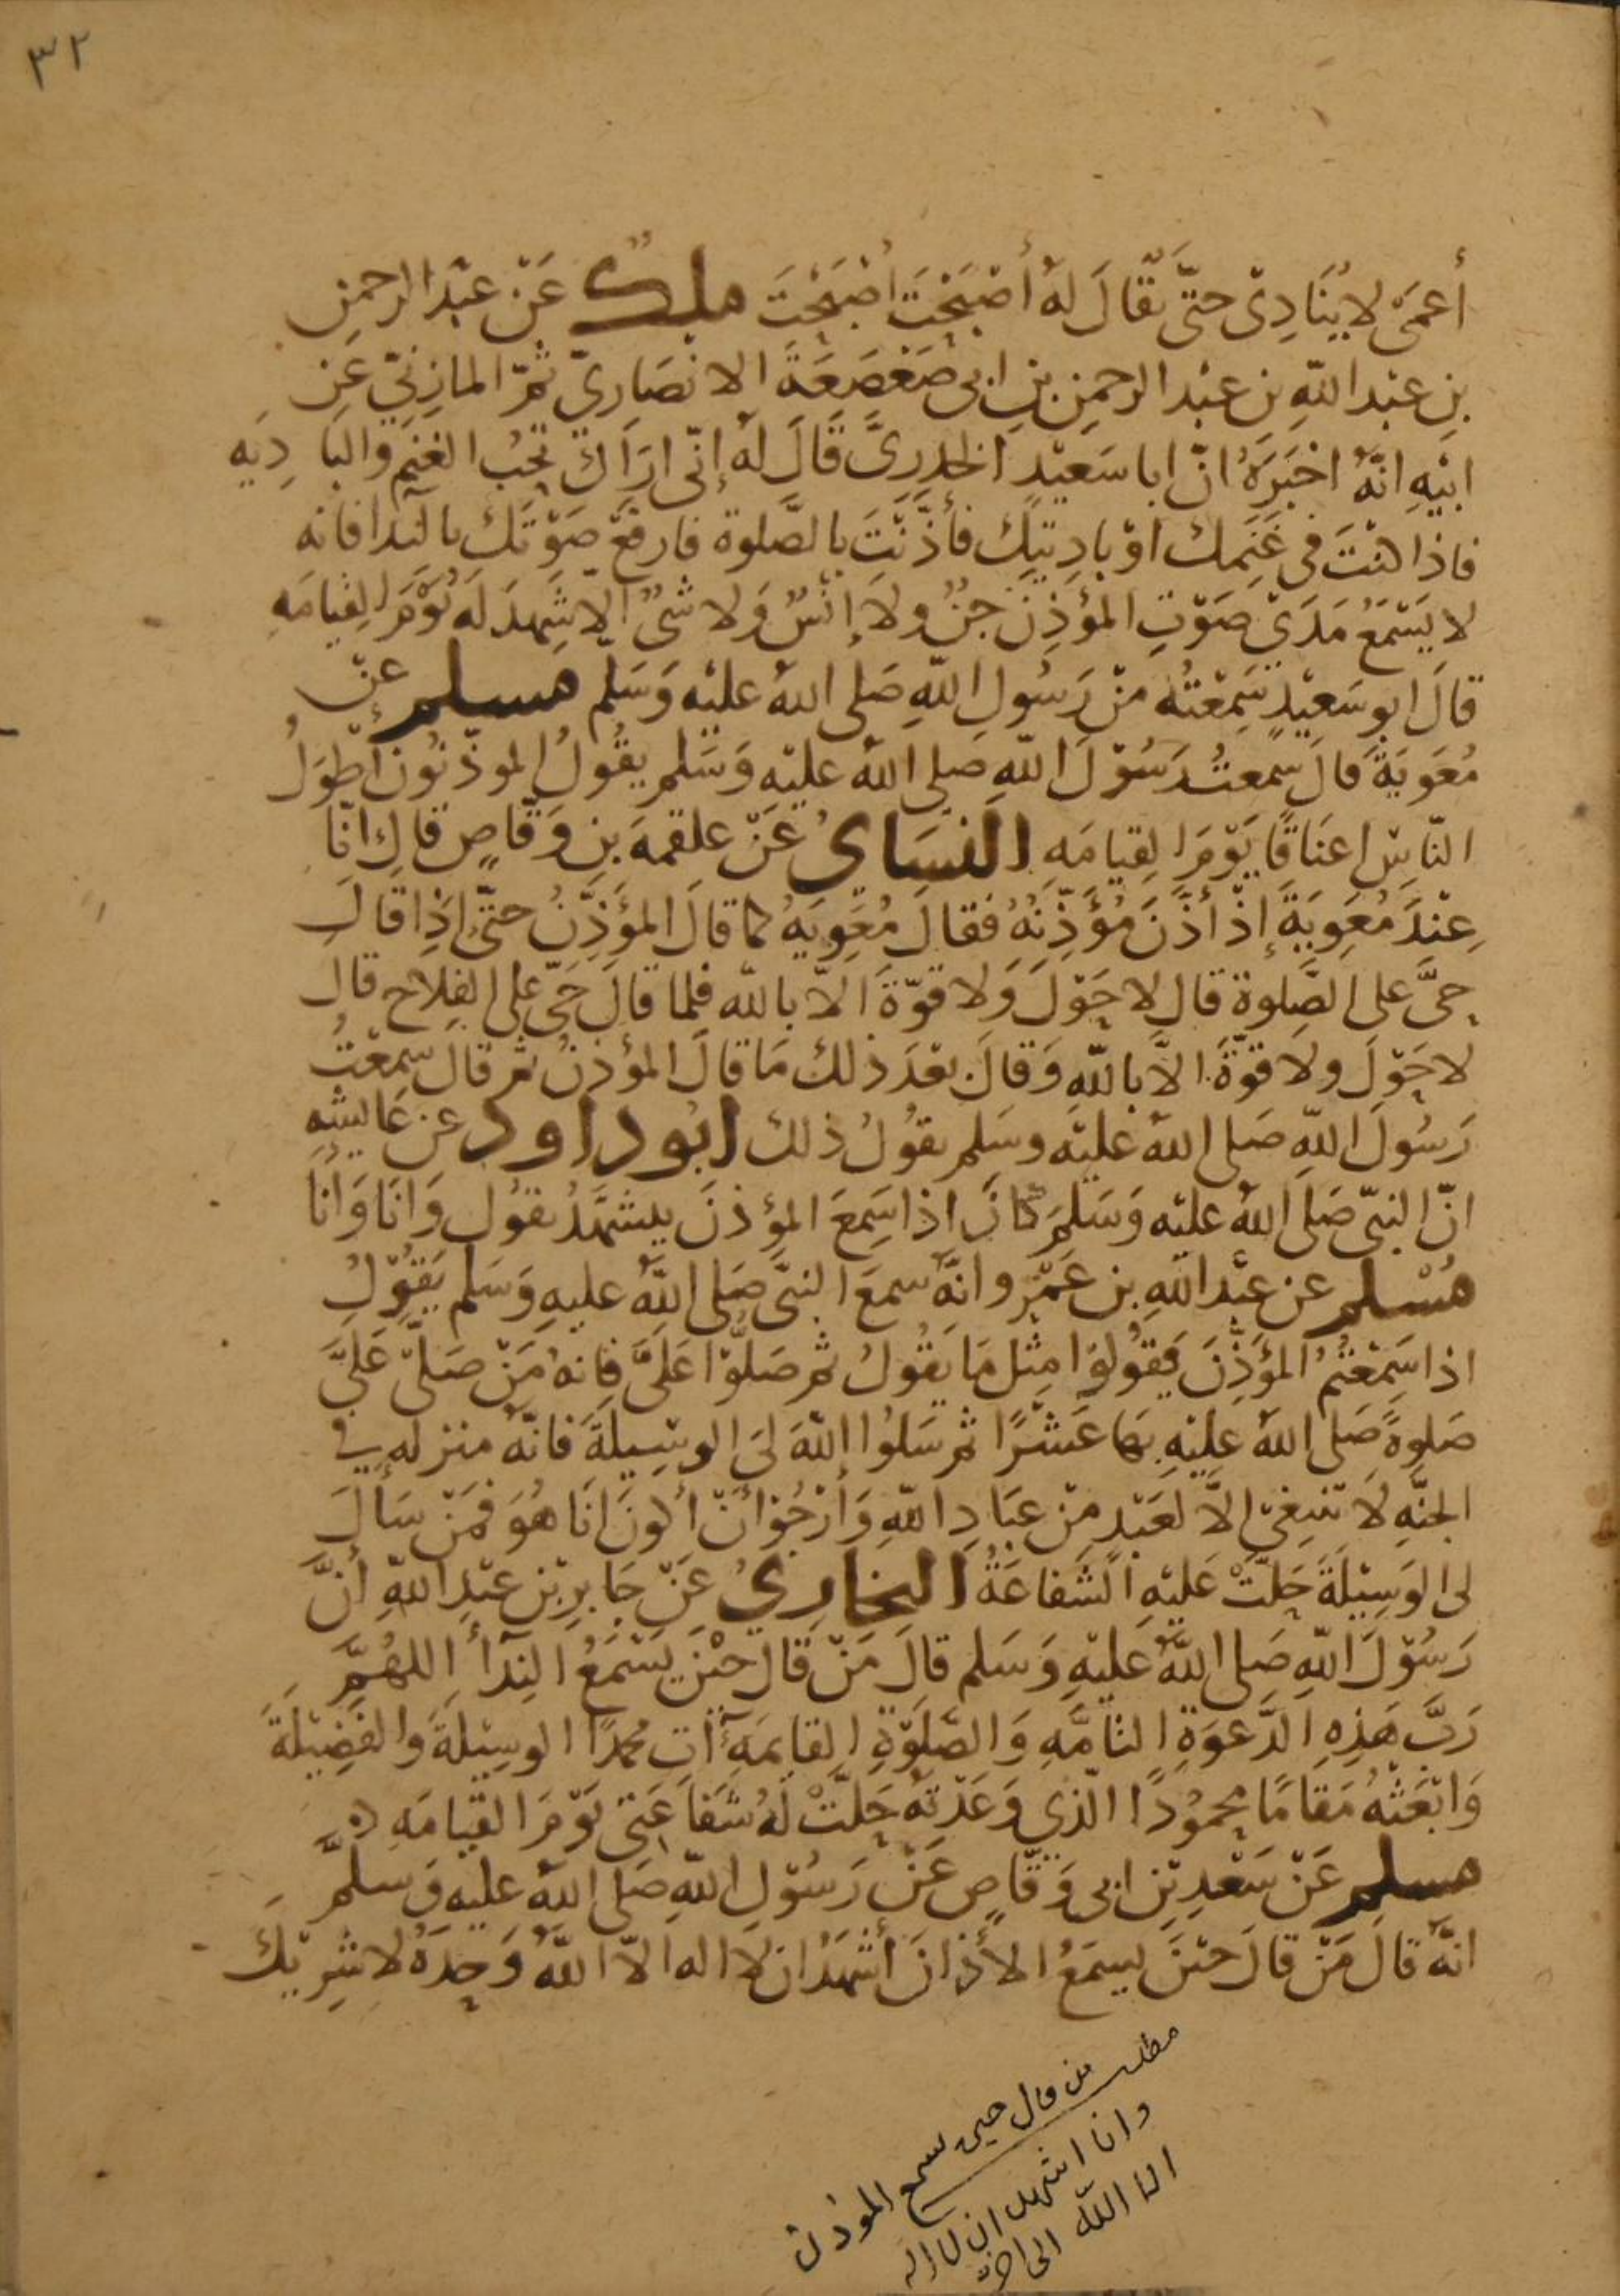 ٣٢
أعمَى لا يُنَادِى حتّى يقَالَ لهُ أصْبَحْتَ أصْبَحْتَ ملك عَنْ عَبْد الرحمن
بنِ عبْد اللّهِ بن عبْد الرحمنِ بنِ ابى صَعْصَعَةَ الانصَارِيّ ثمّ المازِنيّ عَن
ابيْهِ انّهُ اخبَرَهُ انّ ابا سَعيْدٍ الخدرِيَّ قَالَ لهُ إنّى ارَاكَ تحبُ الغنم والبَادِيَه
فاذا كنْتَ فى غَنَمك اوْ بادِيَتِك فأذّنْتَ بالصَّلوة فارفعْ صَوْتَكَ بالنّدا فانه
لا يَسْمَعُ مَدَىْ صَوْتِ المؤذِنِ جِنٌ ولا إنْسٌ وَلا شىٌ الا شهِدَ لَه يَوْمَ القِيامَهِ
قالَ ابو سَعيْدٍ سَمِعْتُه منْ رَسُولِ اللّهِ صَلى اللهُ عليْه وَسَلم مسلم عنْ
مُعَوِيَةَ قالَ سمعتُ رَسُوْلَ اللّهِ صلى اللهُ عليْه وَسَلم يقُولُ الموذّنُون أطوَلُ
النّاسِ اعنَاقًا يَوْمَ القِيامَهِ النسَاىُ عَنْ علقمهَ بنِ وَقّاصٍ قالَ انّا
عِنْدَ مُعَوِيَةَ إذْ أذَّنَ مُؤَذِّنُهُ فقالَ مُعَوِيَهُ كما قالَ المؤَذِّنُ حتّى اذا قالَ
حىَّ على الصَّلوة قال لا حَوْلَ وَلا قوّةَ الاّ بالله فلما قالَ حَىّ على الفلاح قال
لا حَوْلَ ولا قوّةَ الاَّ باللّهِ وَقالَ بعْدَ ذلك مَا قالَ المؤذنُ ثم قالَ سمعْتُ
رَسُولَ اللّهِ صَلى اللهُ عليْه وسَلم يقولُ ذلك ابُو داود عن عَايشهِ
انّ النبىّ صَلى اللهُ عليْه وَسَلمَ كانَ اذا سَمِعَ المؤذنَ يتشهَّدُ يقول وَانَا وَانَا
مُسْلم عن عبْد اللّهِ بن عَمْرو انّهُ سمعَ النبىَّ صَلى اللّهُ عليهِ وَسَلم يَقُوْلُ
اذا سَمِعْتمُ المؤَذِّنَ فقُولوا مِثْل مَا يَقُولُ ثم صَلوّا عَلىَّ فانهُ مَنْ صَلىّ عَلىَّ
صَلوةً صَلى اللهُ عليْهِ بهَا عَشْرًا ثم سَلوُا اللّهَ لِىَ الوسِيلَةَ فانّه منزله فى
الجنَّهِ لا تنبغىْ الاَّ لعَبْدٍ مِنْ عبَادِ اللّهِ وَأرْجُوْ أنْ أكونَ انَا هُوَ فمَنْ سَألَ
لى الوَسِيْلَةَ حَلتْ عَليْهِ الشَفاعَةُ البخارِيُ عَنْ جَابرِ بْن عبْدِ اللّهِ أنَّ
رَسُوْلَ اللّهِ صَلى اللّهُ عَليْهِ وَسَلم قالَ مَنْ قَالَ حيْنَ يَسْمَعُ النِدَآ اللهُمَّ
رَبَّ هَذِهِ الدَّعوَةِ التامَّهِ وَالصَّلَوْةِ القايمَهِ آتِ محمدًا الوسِيْلَةَ وَالفَضِيْلَةَ
وَابْعَثْهُ مَقَامًا محمُودًا الّذى وَعَدْتهُ حَلَّتْ لهُ شَفاعَتى يَوْمَ القيامَهِ ه
مسلم عَنْ سَعْدِ بْنِ ابى وَقّاصٍ عَنْ رَسُوْلِ اللّهِ صَلى اللهُ عليْه وَسلمَّ
انّهُ قالَ مَنْ قالَ حيْنَ يسمَعُ الأذانَ أشهَدُ ان لا اله الاّ اللّهُ وَحدَهُ لا شرِيْكَ
مطلب من قال حين يسمع المؤذن
وانا اشهد ان لا اله
الا اللّه الى اخره